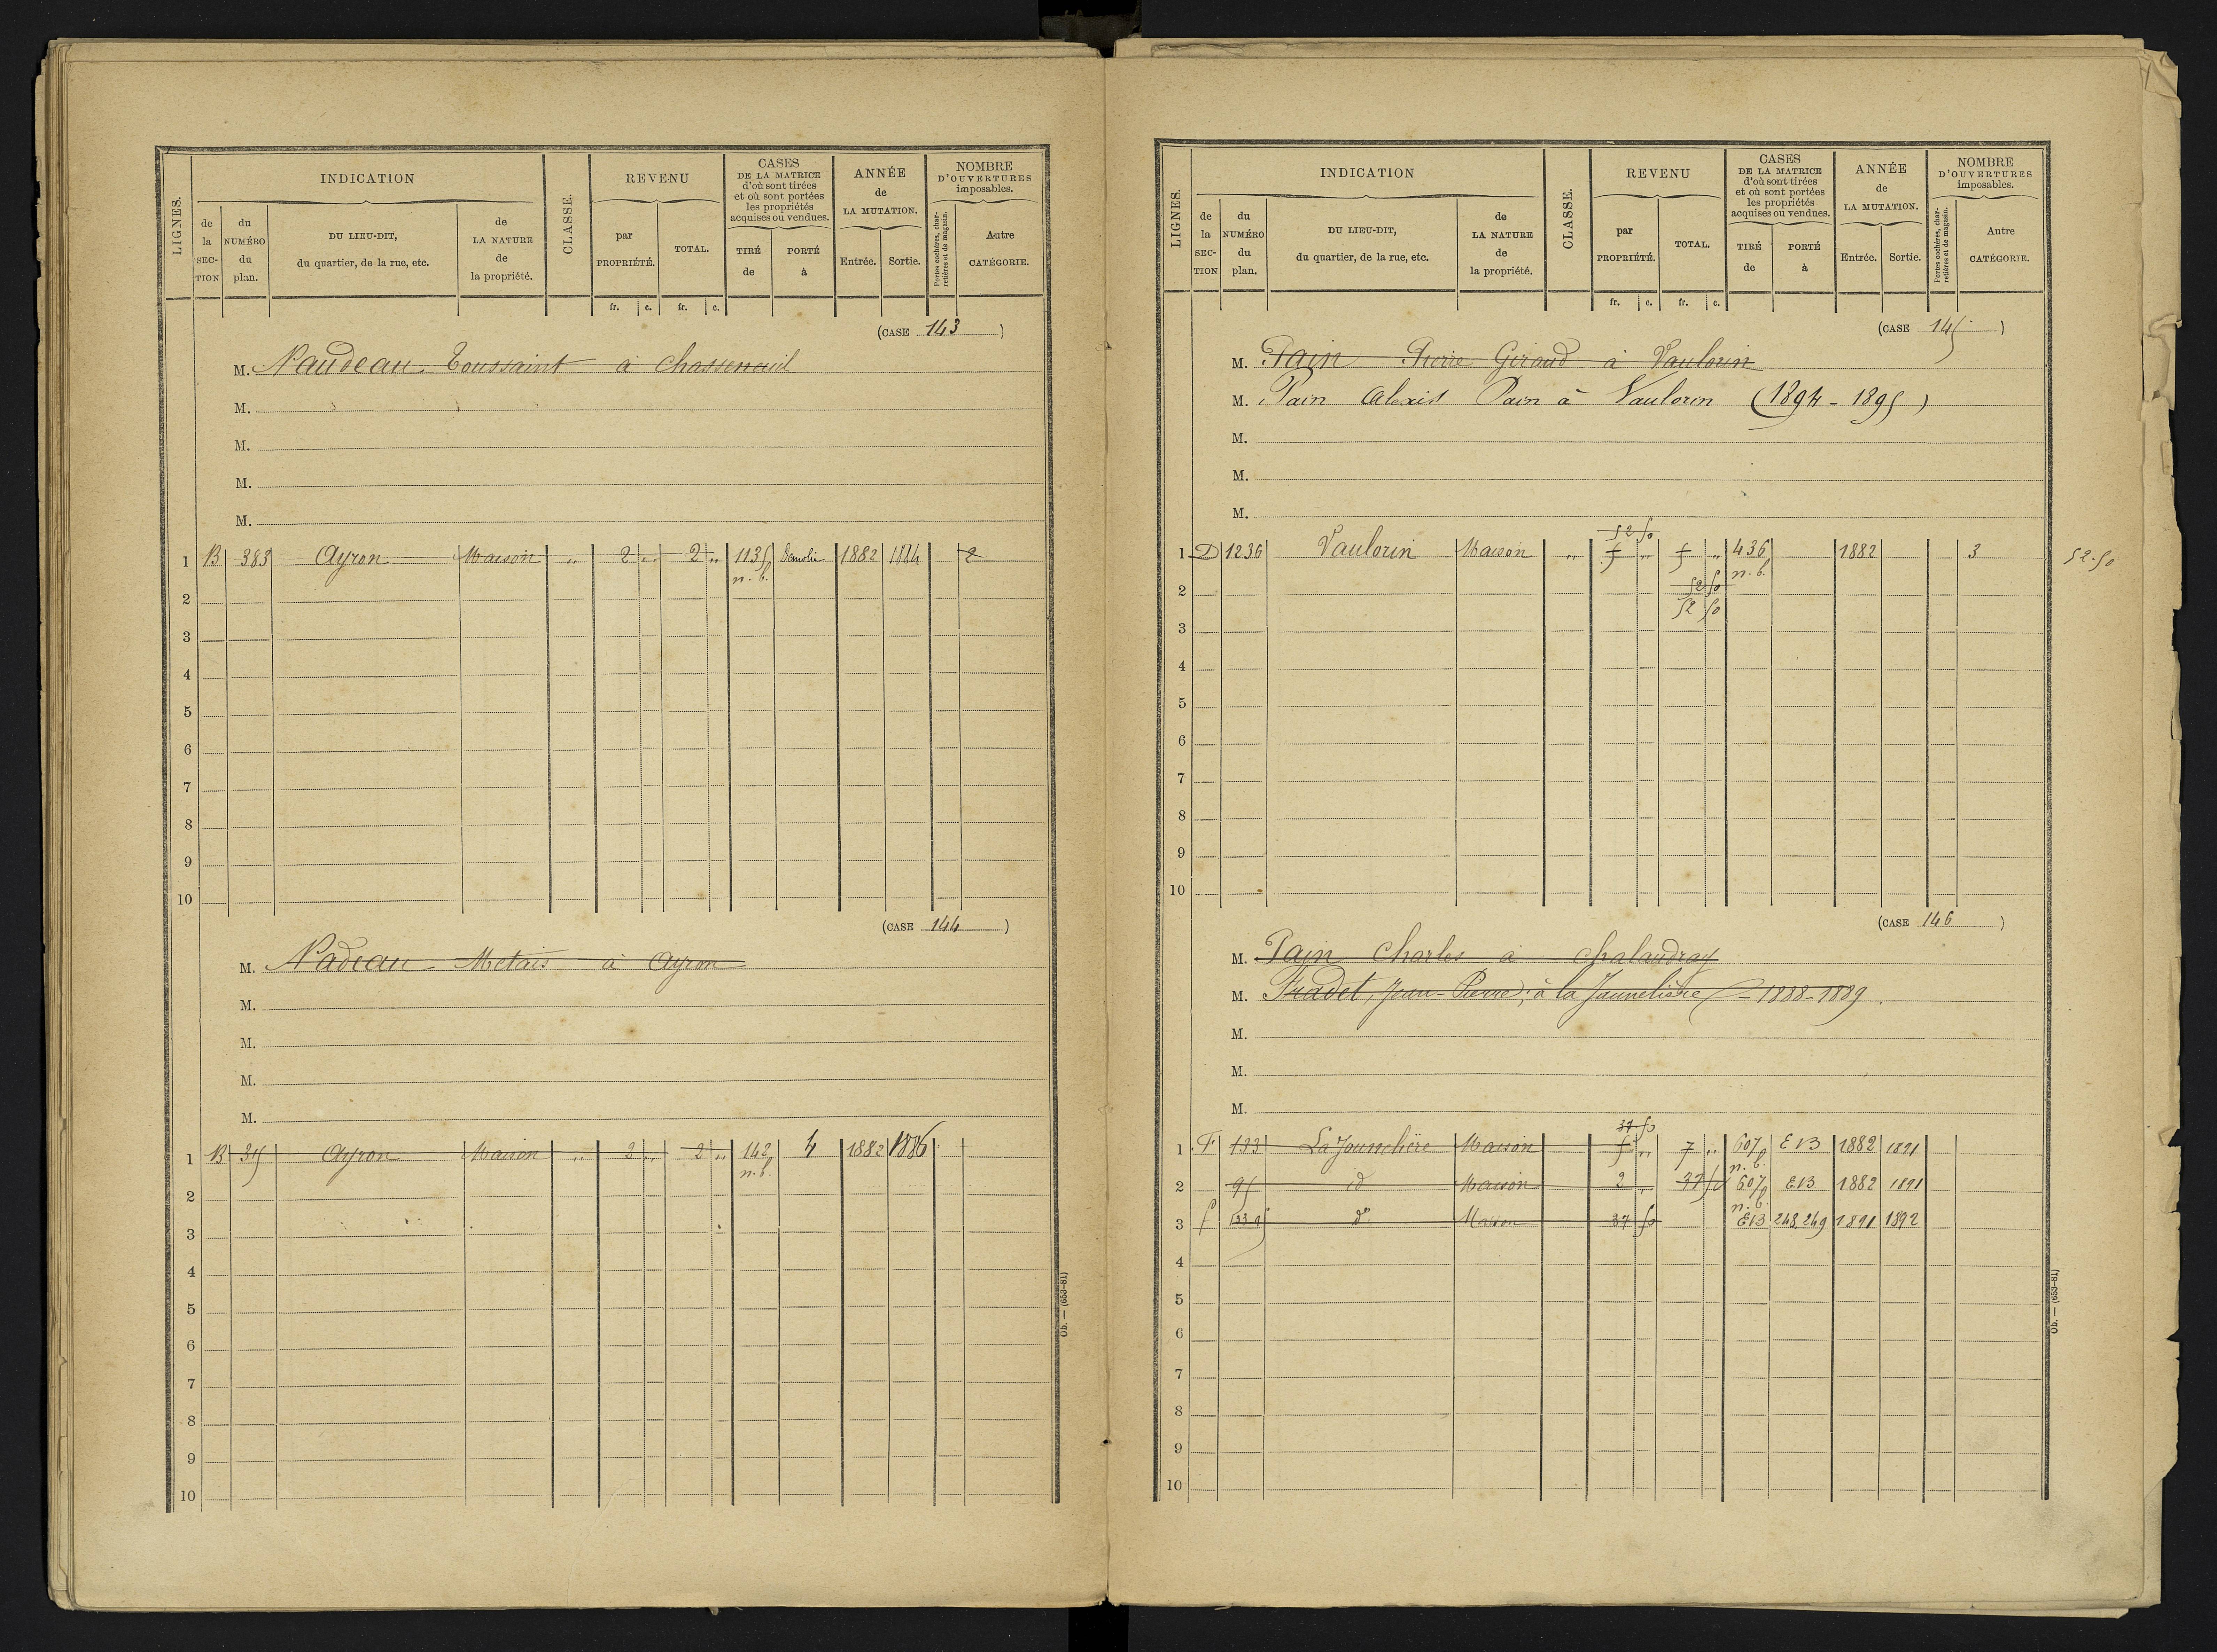 LIGNES.
INDICATION
de la SECTION
du NUMÉRO du plan.
DU LIEU-DIT, du quartier, de la rue, etc.
de LA NATURE de la propriété.
CLASSE.
REVENU
par PROPRIÉTÉ.
TOTAL.
fr. c. fr. c.
CASES DE LA MATRICE d'où sont tirées et où sont portées les propriétés acquises ou vendues.
TIRÉ de
PORTÉ à
ANNÉE de LA MUTATION.
Entrée. Sortie.
NOMBRE D'OUVERTURES imposables.
Portes cochères, charretières et de magasin.
Autre CATÉGORIE.
(CASE 143)
M. Naudeau Toussaint à Chasseneuil
M.
M.
M.
M.
1 B 383 Ayron Maison " 2 " 2 " 1135 Démolie 1882 1884 2
n. b.
2
3
4
5
6
7
8
9
10
(CASE 144)
M. Nadeau Metais à Ayron
M.
M.
M.
M.
1 B 345 Ayron Maison " 2 " 2 " 142 4 1882 1886
n. b.
2
3
4
5
6
7
8
9
10
Ob. — (653-81)
LIGNES.
INDICATION
de la SECTION
du NUMÉRO du plan.
DU LIEU-DIT, du quartier, de la rue, etc.
de LA NATURE de la propriété.
CLASSE.
REVENU
par PROPRIÉTÉ.
TOTAL.
fr. c. fr. c.
CASES DE LA MATRICE d'où sont tirées et où sont portées les propriétés acquises ou vendues.
TIRÉ de
PORTÉ à
ANNÉE de LA MUTATION.
Entrée. Sortie.
NOMBRE D'OUVERTURES imposables.
Portes cochères, charretières et de magasin.
Autre CATÉGORIE.
(CASE 145)
M. Pain Pierre Giraud à Vaulorin
M. Pain Alexis Pain à Vaulorin (1894-1895)
M.
M.
M.
52 50
1 D 1236 Vaulorin Maison " 5 " 5 " 436 1882 3 52.50
n. b.
2 52 50
52 50
3
4
5
6
7
8
9
10
(CASE 146)
M. Pain Charles à Chalandray
M. Fradet, Jean-Pierre, à la Jaunelière - 1888-1889.
M.
M.
M.
37 50
1 F 133 La Jounelière Maison 5 " 7 " 607 E13 1882 1891
n. b.
2 95 id Maison 2 " 37 50 607 E13 1882 1891
n. b.
3 f do Maison 37 50 E13 248,249 1891 1892
4
5
6
7
8
9
10
Ob. — (653-81)